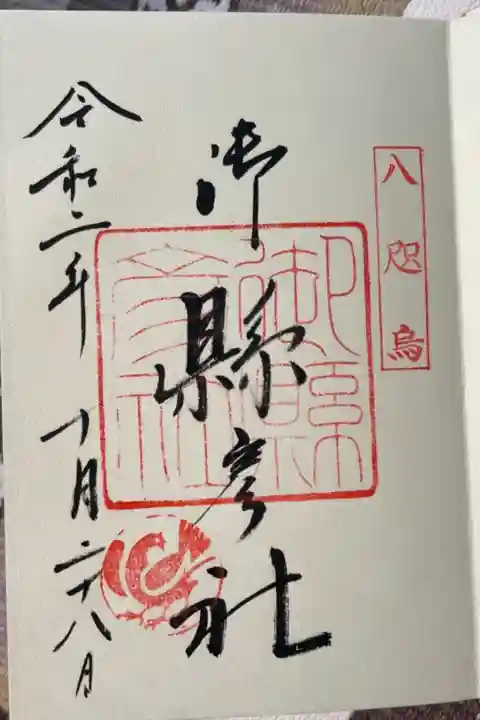 八咫烏
御縣彦社
御縣彦社
令和二年十月二十八日